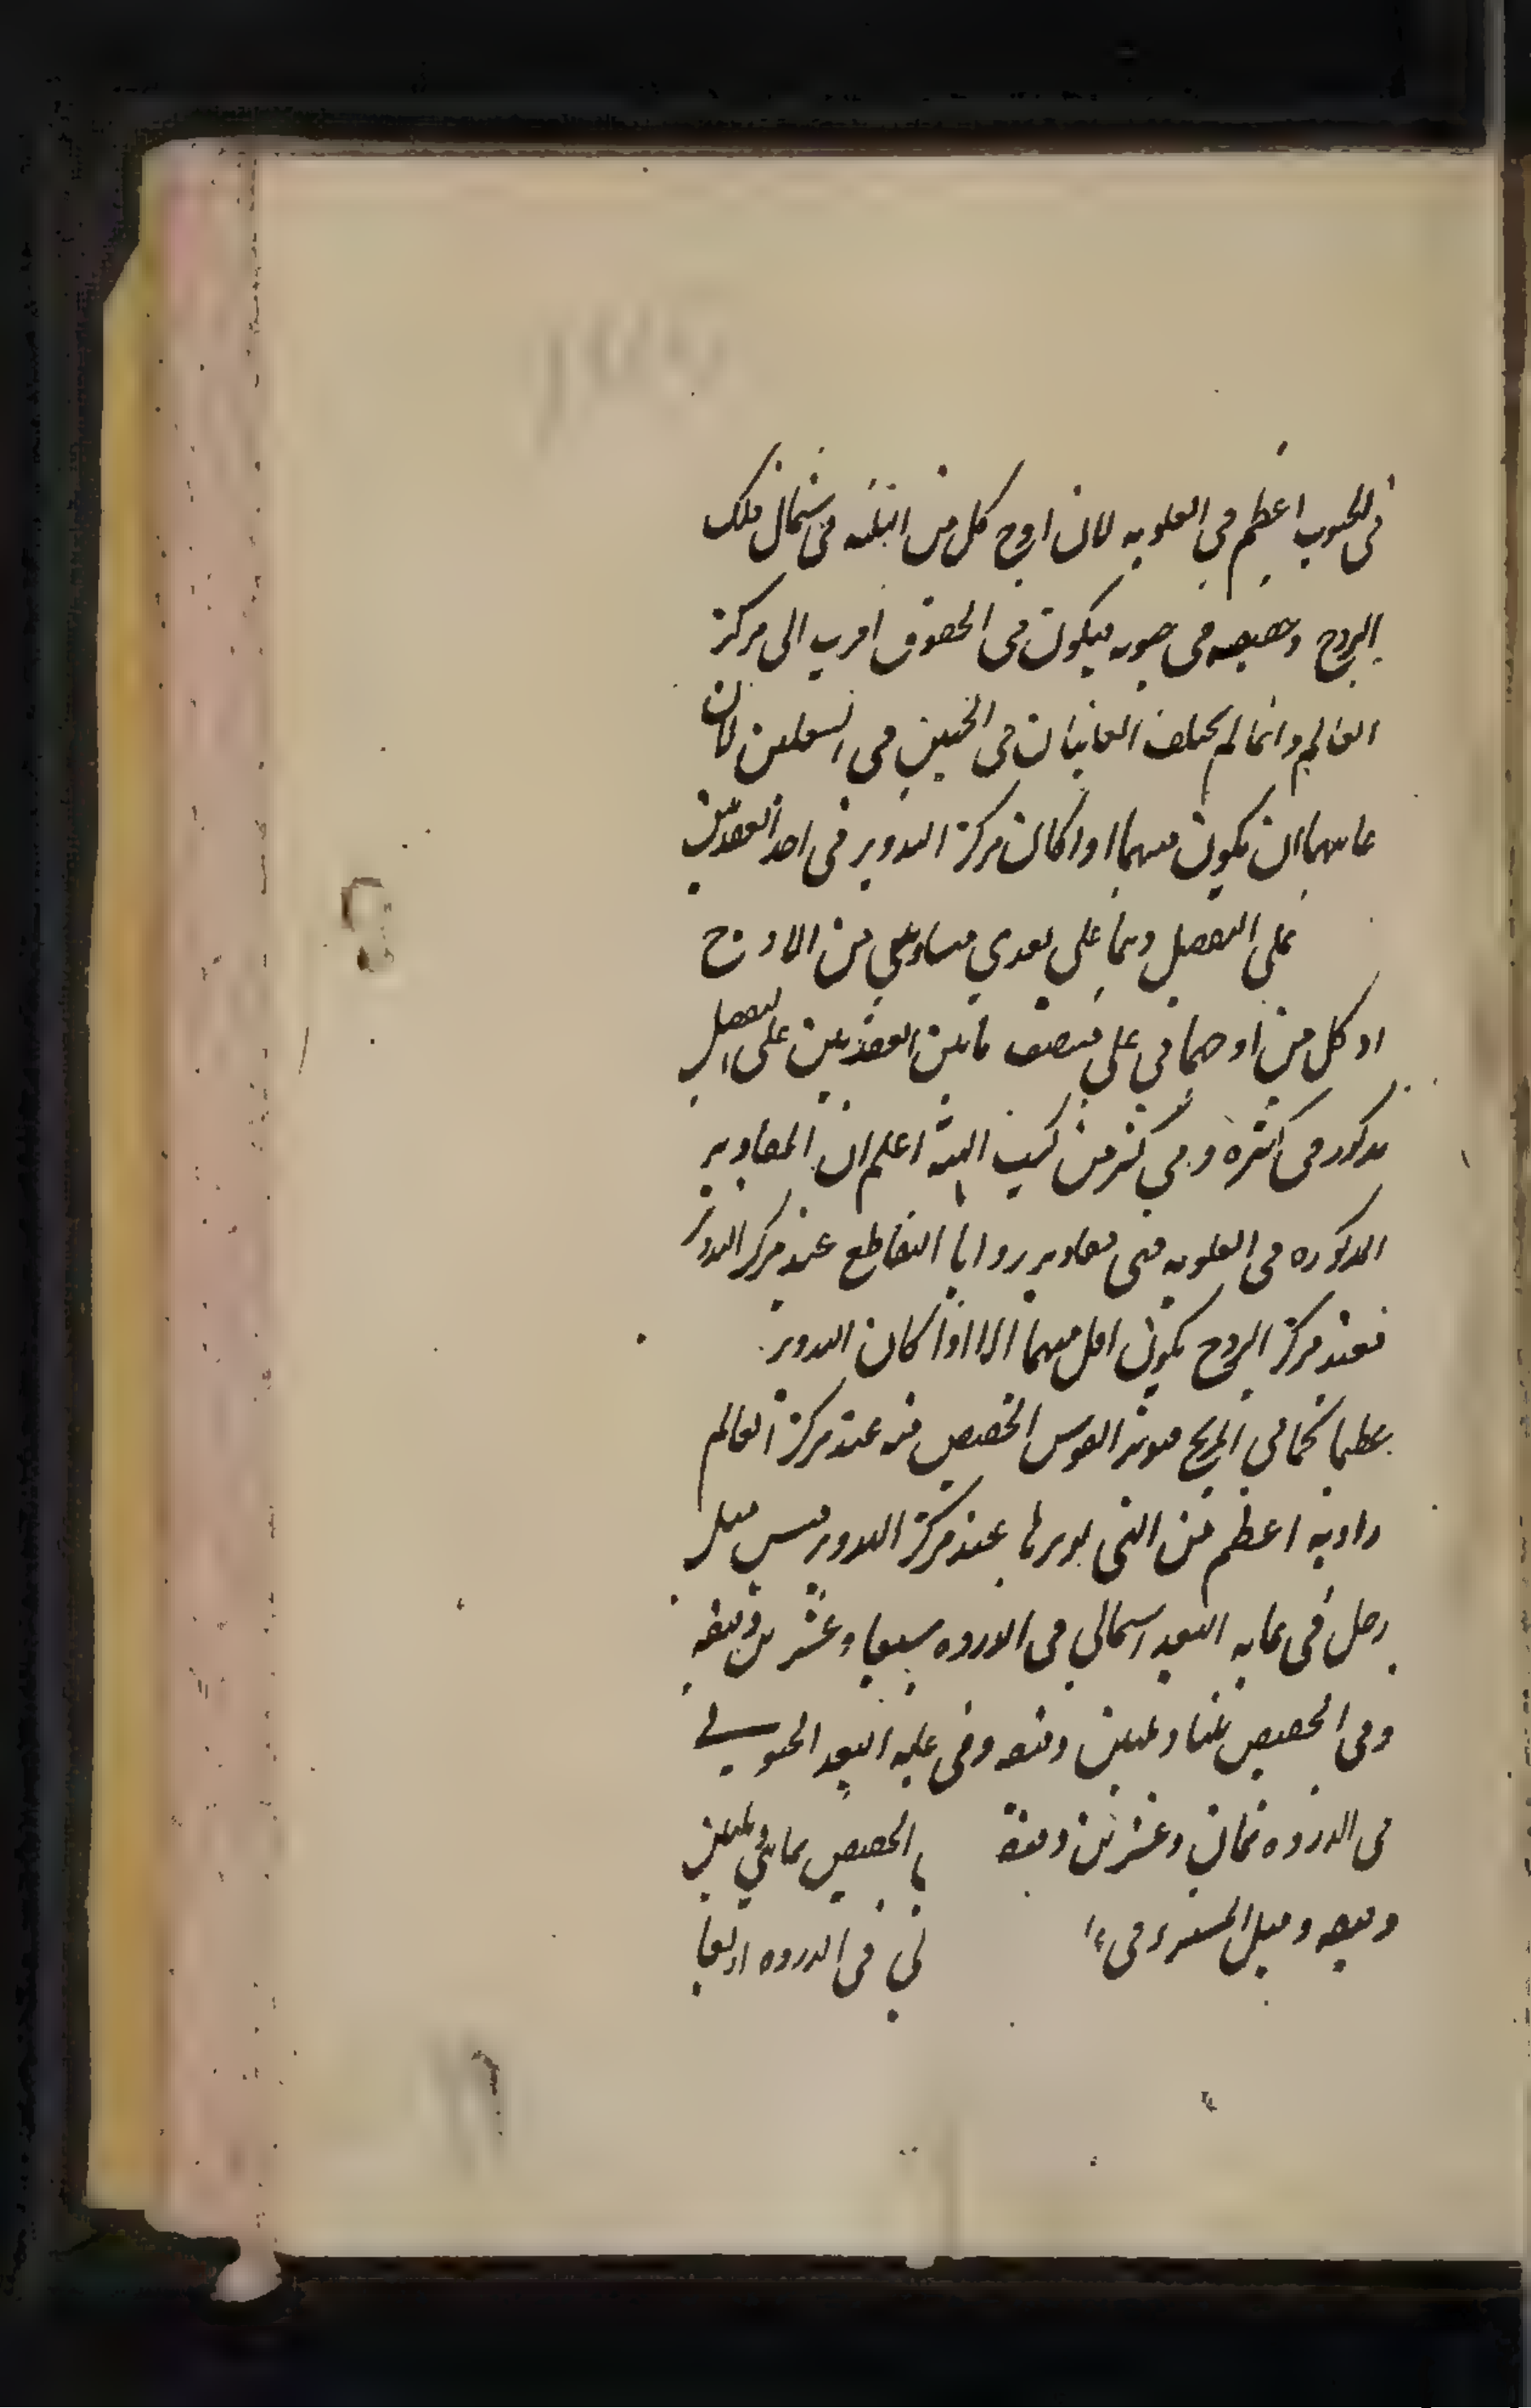 فى الجنوب اعظم فى العلويه لان اوج كل من الثلثه فى شمال فلك
البروج وحضيضه فى جنوبه فيكون فى الحضيض اقرب الى مركز
العالم وانما لم يختلف الغايتان فى الجنبين فى السفليين لان
غايتهما ان يكون فيهما اذا كان مركز التدوير فى احد العقدتين
على التفصيل وهما على بعدى متساويين من الاوج
اذ كل من اوجهما فى على منتصف ما بين العقدتين على التفصيل
مذكور فى كثره و فى كثر من كتب الهيئه اعلم ان المقادير
المذكوره فى العلويه هى مقادير زوايا التقاطع عند مركز التدوير
فعند مركز البروج يكون اقل منهما الا اذا كان التدوير
عظيما كما فى المريخ فيوتر القوس الحضيض منه عند مركز العالم
زاويه اعظم من التى يوترها عند مركز التدوير فيس ميل
زحل فى غايه البعد الشمالي فى الذروه سبعا وعشرين دقيقه
وفى الحضيض ثلثا وثلثين دقيقه وفى غايه البعد الجنوبي
فى الذروه ثمان وعشرين دقيقه الحضيض ثمانى وثلثين
دقيقه وميل المشترى فى نى فى الذروه اربعا